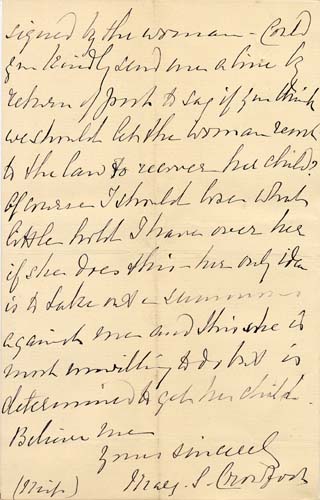 signed by the woman - Could
you kindly send me a line by
return of post to say if you think
we should let the woman resort
to the law to recover her child?
Of course I should lose what
little hold I have over her
if she does this - her only idea
is to take out a summons
against me and this she is
most unwilling to do but is
determined to get her child.
Believe me
Yours sincerely
(Miss) Mary S. Crowfoot